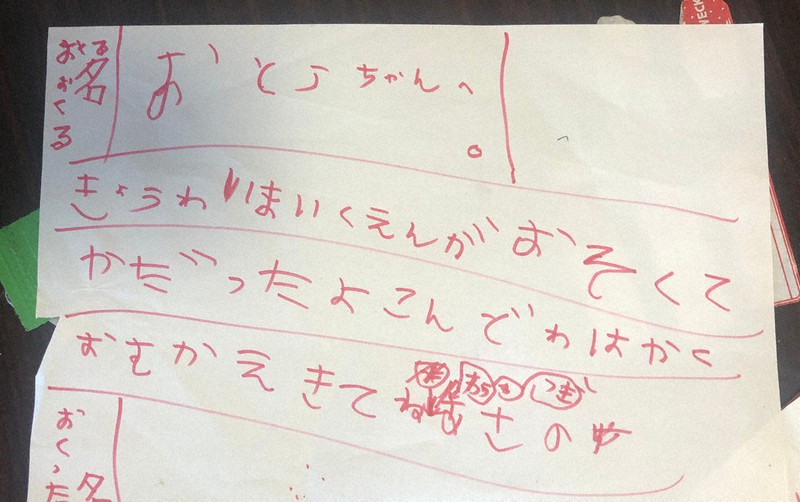 おくる名
おとうちゃんへ。
きょうわほいくえんがおそくて
かだったよこんどわはかく
おむかえきてね
おくった名